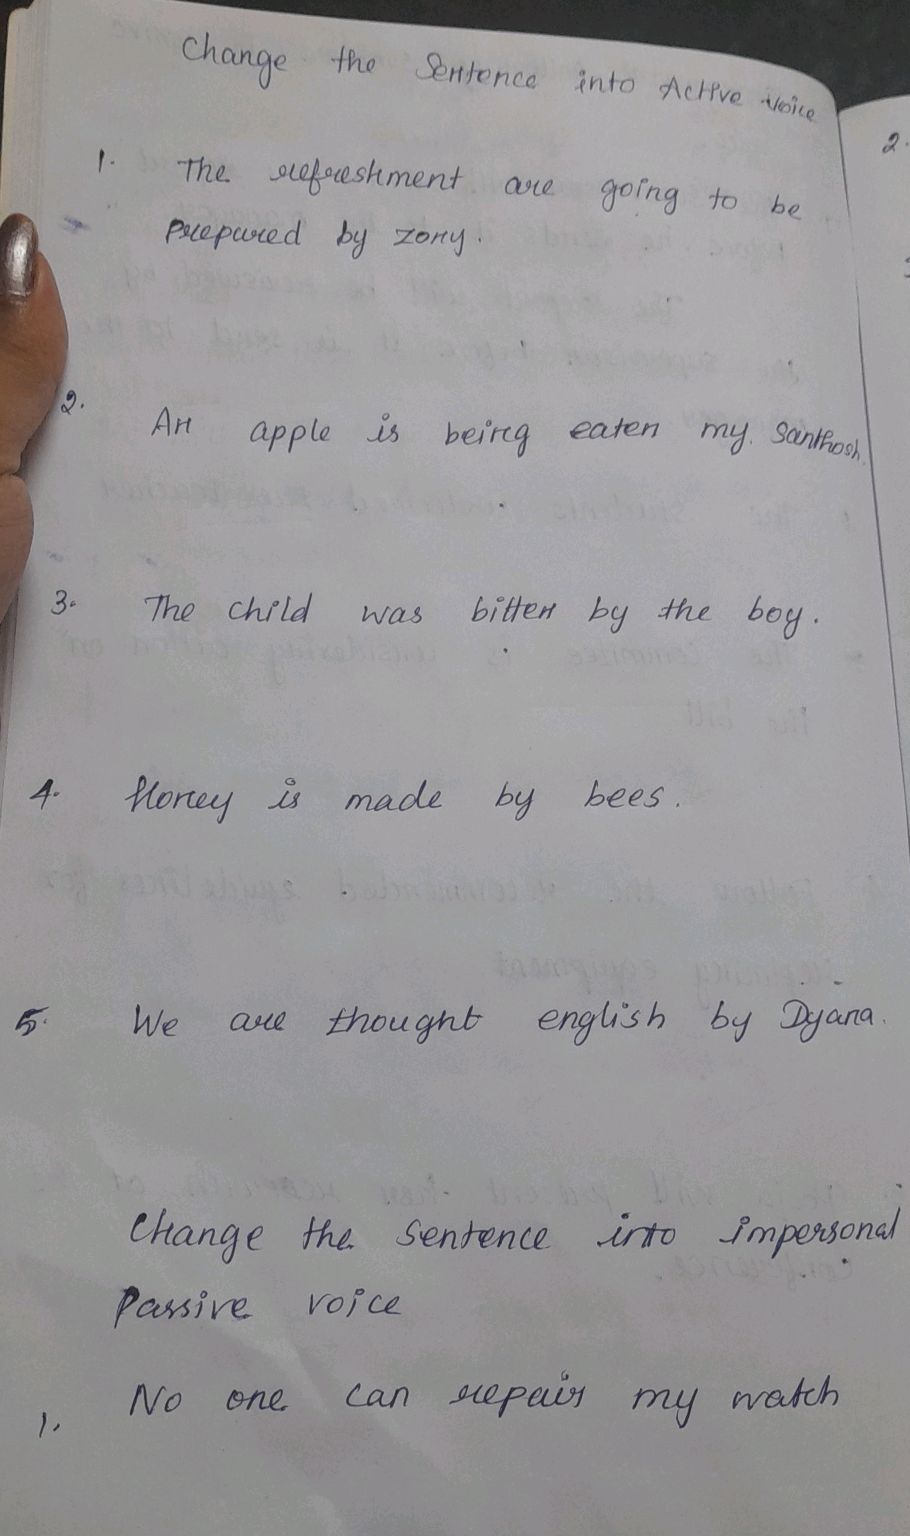 Change the Sentence into Active voice
1. The refreshment are going to be
prepared by zony.
2. An apple is being eaten my santhosh.
3. The child was bitten by the boy.
4. Honey is made by bees.
5. We are thought english by Dyana.
Change the sentence into impersonal
Passive voice
1. No one can repair my watch
2.